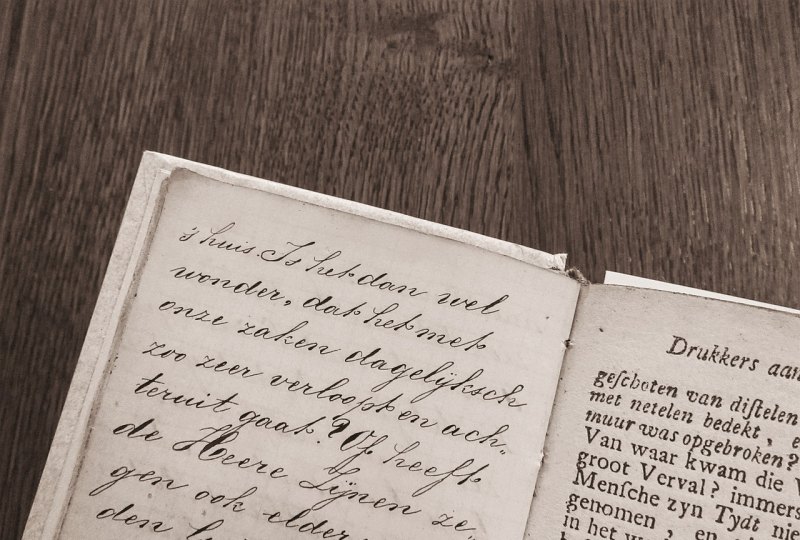 's huis. Is het dan wel
wonder, dat het met
onze zaken dagelijksch
zoo zeer verloopt en ach„
teruit gaat? Of heeft
de Heere Lijnen ze„
gen ook elder
den
Drukkers aan
geſchoten van diſtelen
met netelen bedekt, e
muur was opgebroken?
Van waar kwam die V
groot Verval? immers
Menſche zyn Tydt nie
genomen, en
in het w